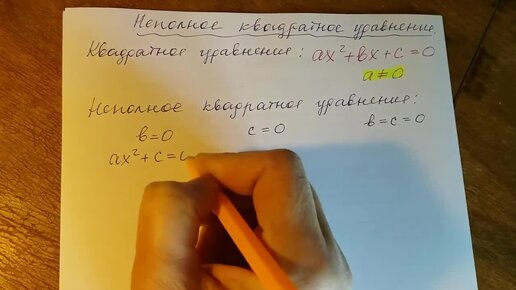 Неполное квадратное уравнение.
Квадратное уравнение: ax²+bx+c=0
a≠0
Неполное квадратное уравнение:
b=0 c=0 b=c=0
ax²+c=